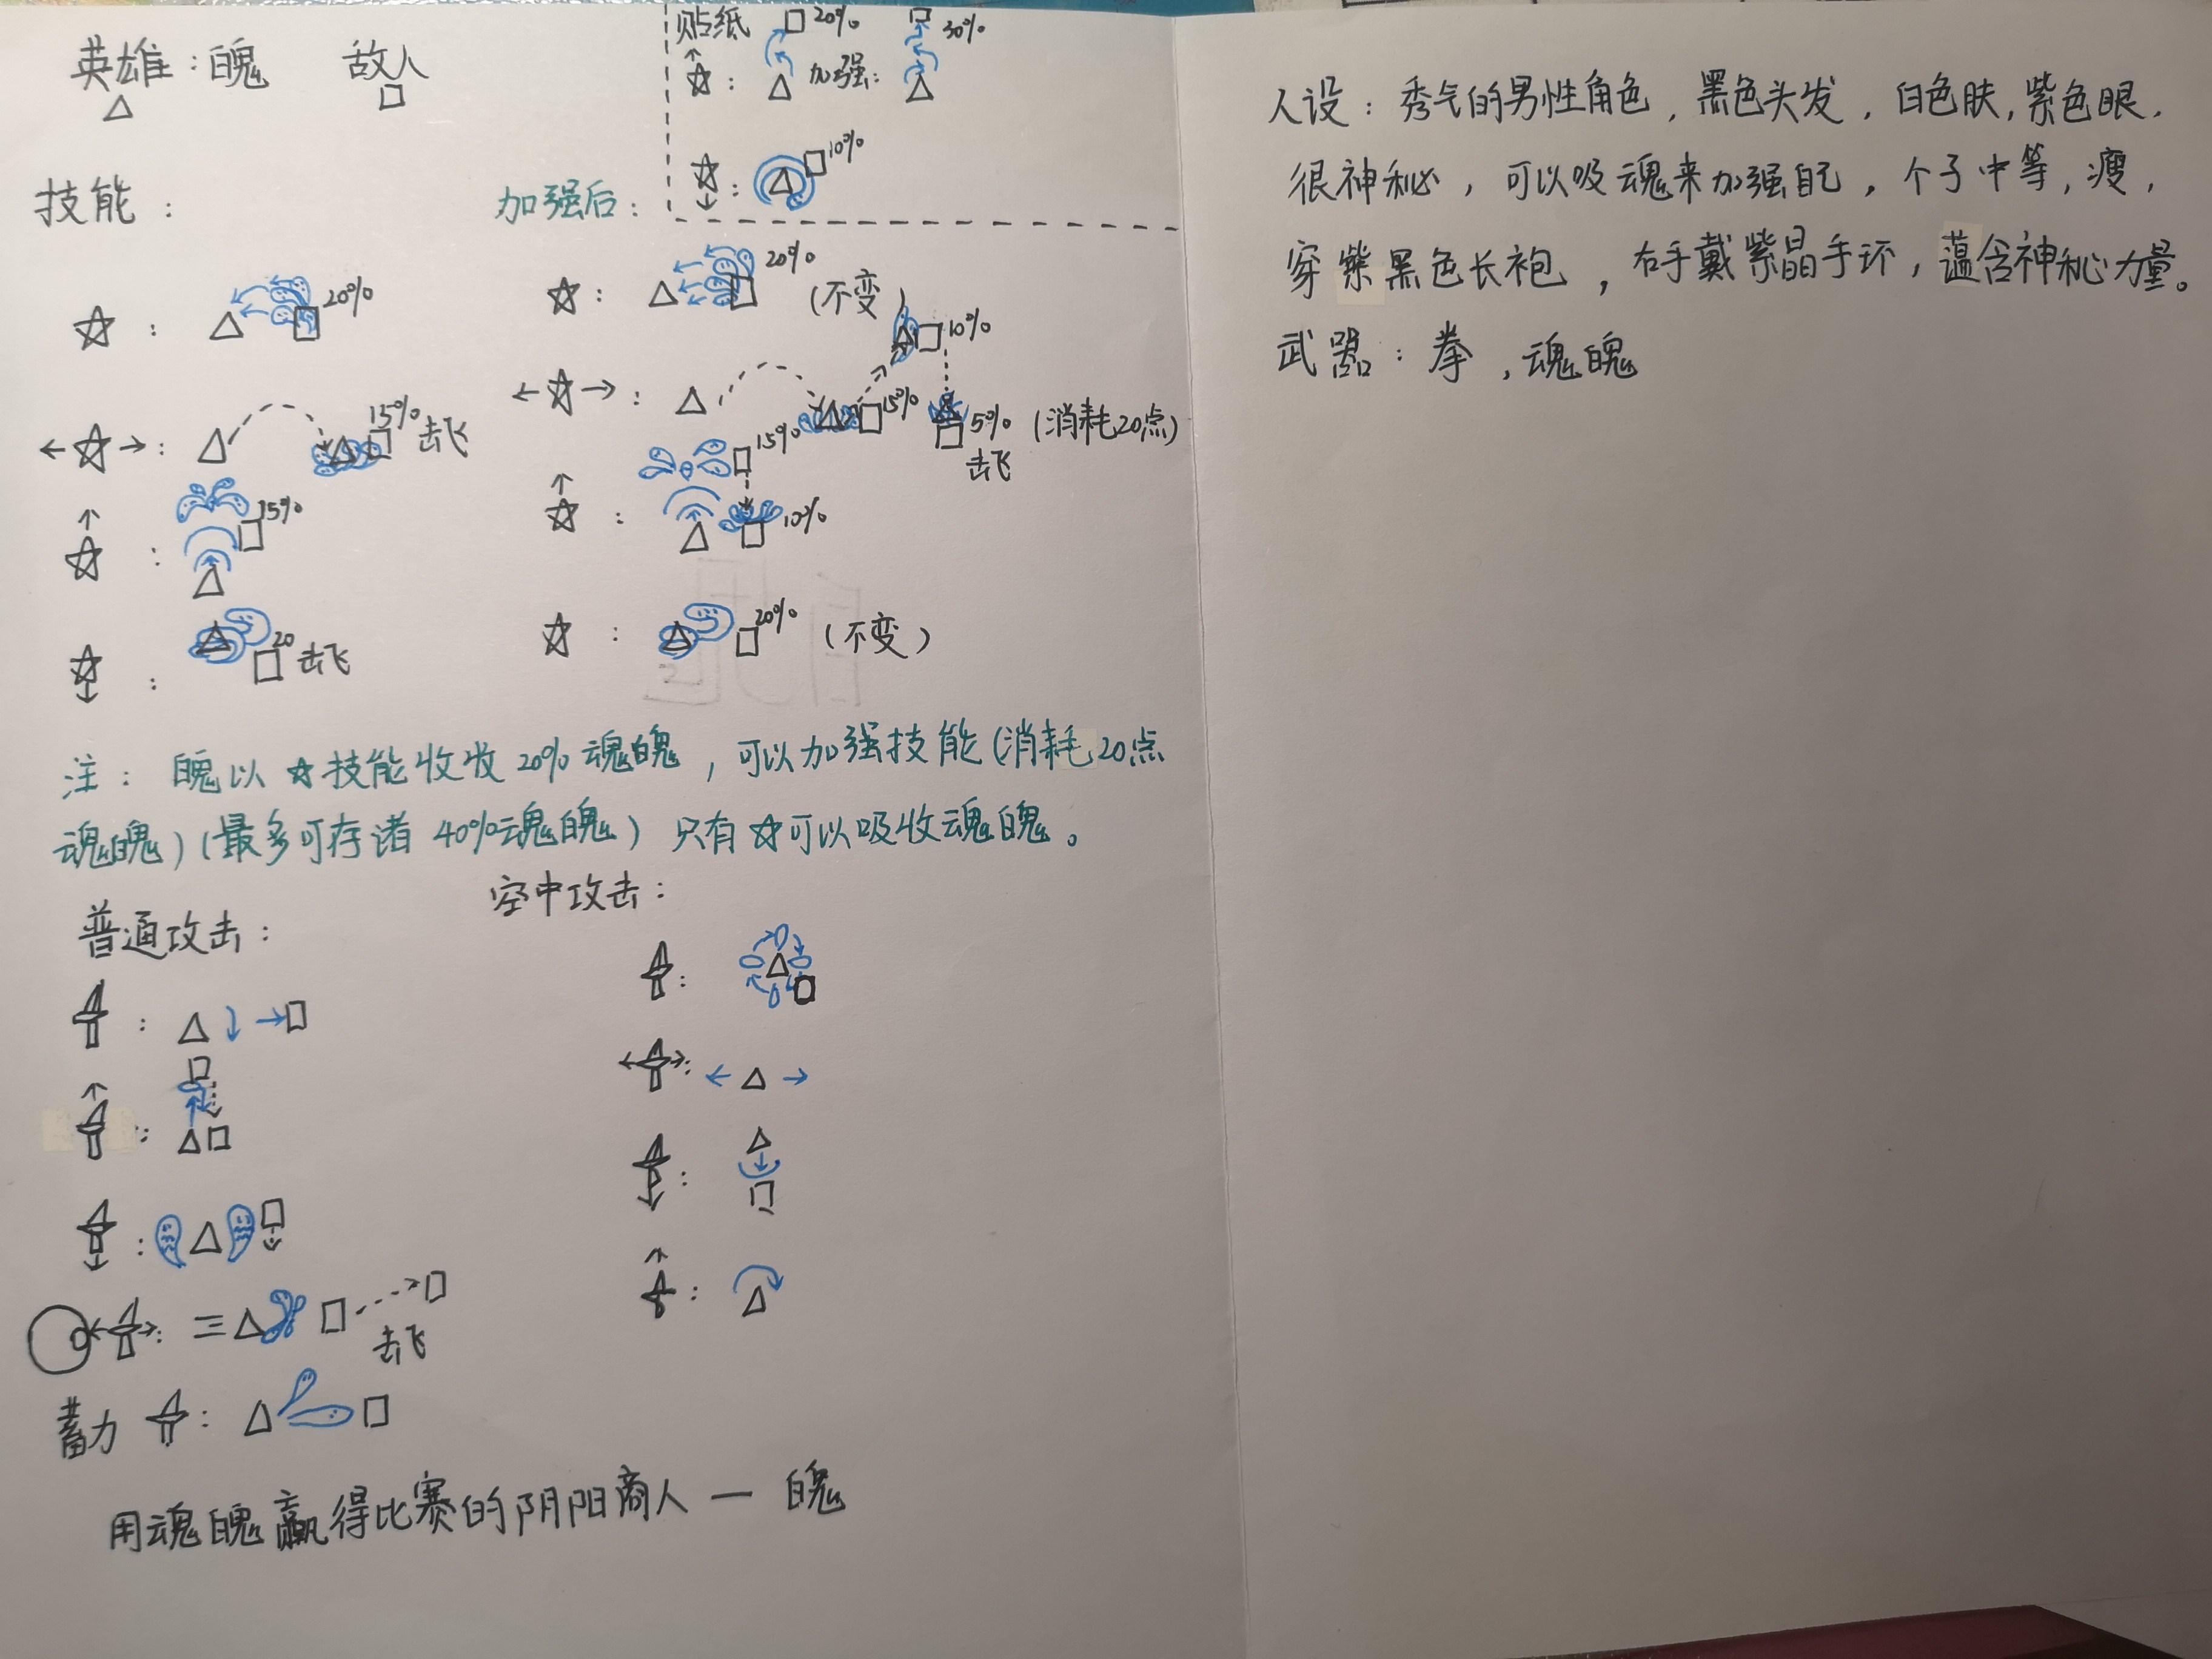 英雄：魄 敌人
贴纸 20% 30%
加强：
10%
技能：
加强后：
20%
20% (不变)
10%
15% 击飞
15% 5% (消耗20点)
击飞
15%
15%
10%
20 击飞
20% (不变)
注：魄以☆技能收收20%魂魄，可以加强技能(消耗20点
魂魄)(最多可存诸40%魂魄) 只有☆可以吸收魂魄。
普通攻击：
空中攻击：
击飞
蓄力
用魂魄赢得比赛的阴阳商人一 魄
人设：秀气的男性角色，黑色头发，白色肤，紫色眼，
很神秘，可以吸魂来加强自己，个子中等，瘦，
穿紫黑色长袍，右手戴紫晶手环，蕴含神秘力量。
武器：拳，魂魄